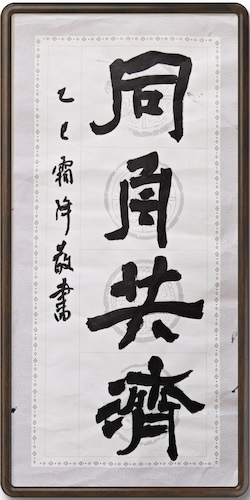 同舟共濟
乙巳霜降敬書